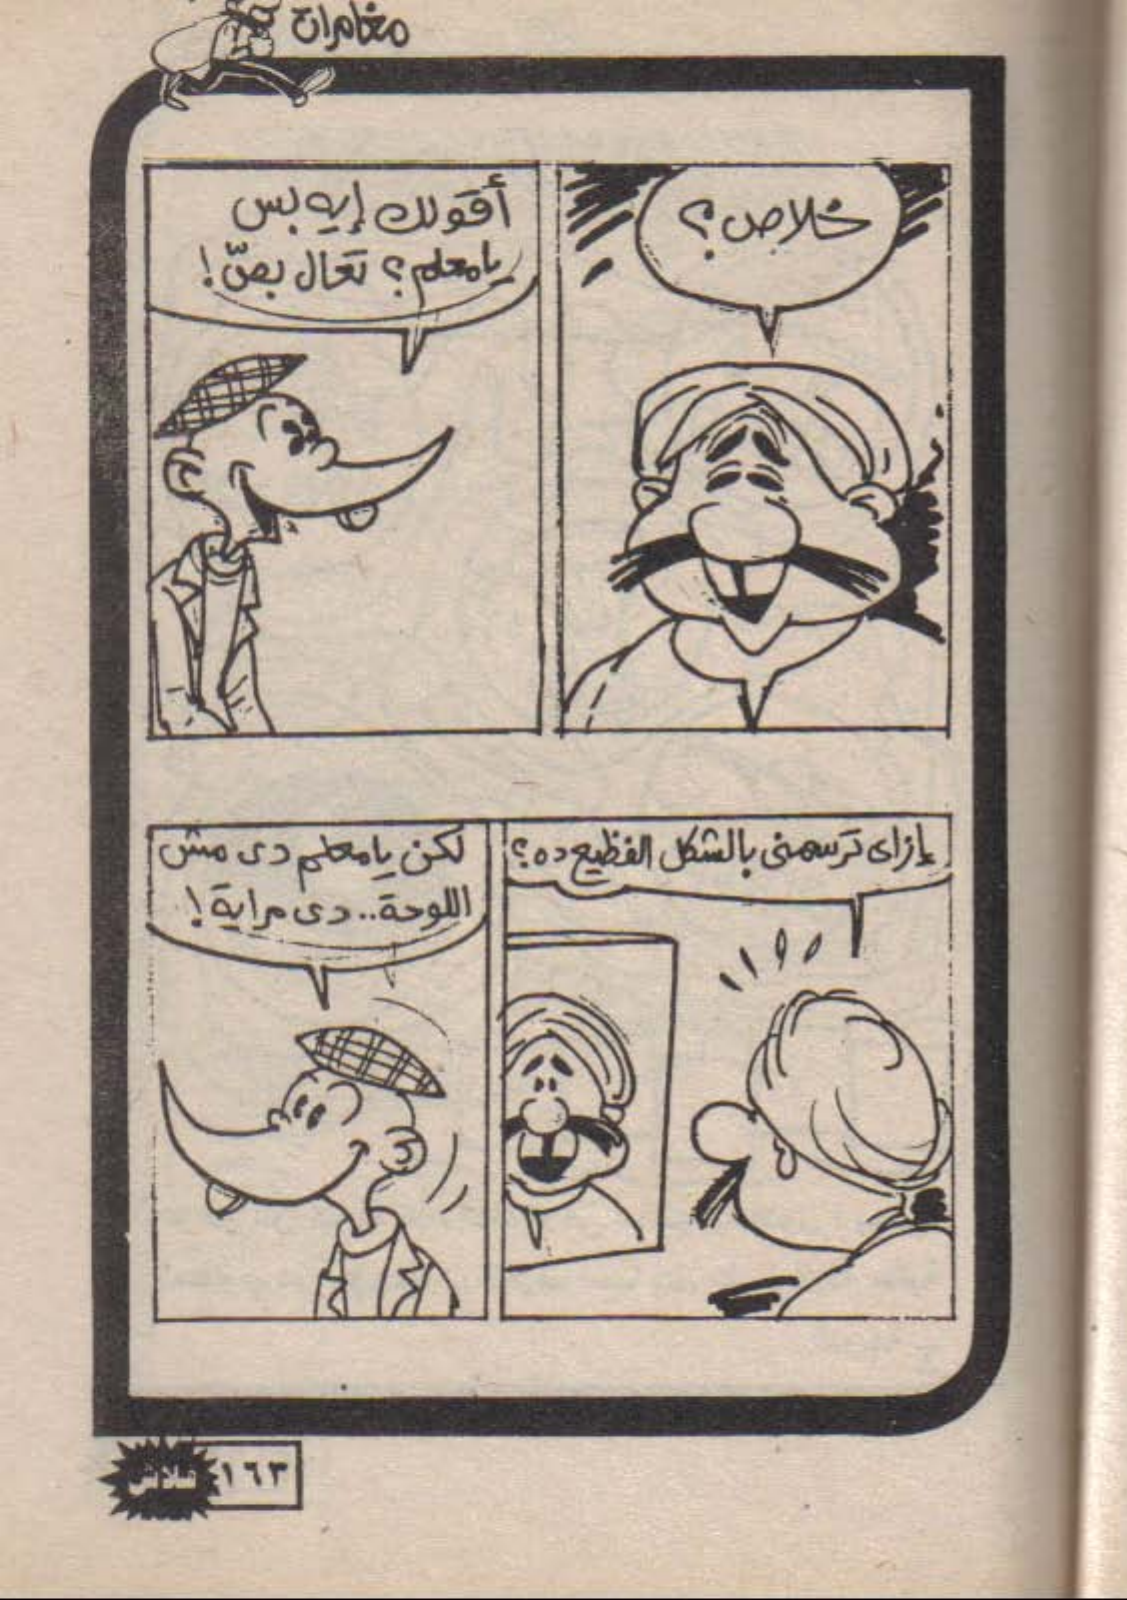 مغامرات
خلاص؟
أقولك إيه بس
يامعلم؟ تعال بصّ!
إزاى ترسمنى بالشكل الفظيع ده؟
لكن يامعلم دى مش
اللوحة.. دى مراية!
١٦٣
فلاش